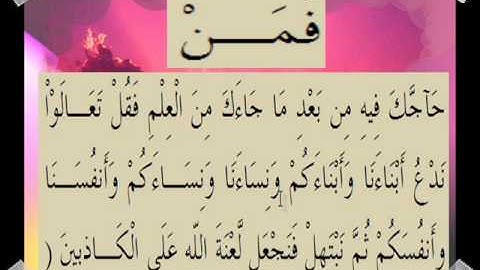 فَمَـــنْ
حَآجَّكَ فِيهِ مِن بَعْدِ مَا جَاءَكَ مِنَ الْعِلْمِ فَقُلْ تَعَالَوْاْ
نَدْعُ أَبْنَاءَنَا وَأَبْنَاءَكُمْ وَنِسَاءَنَا وَنِسَـــاءَكُمْ وَأَنفُسَـــنَا
وَأَنفُسَكُمْ ثُمَّ نَبْتَهِلْ فَنَجْعَل لَّعْنَةَ اللّه عَلَى الْكَـــاذِبِينَ (